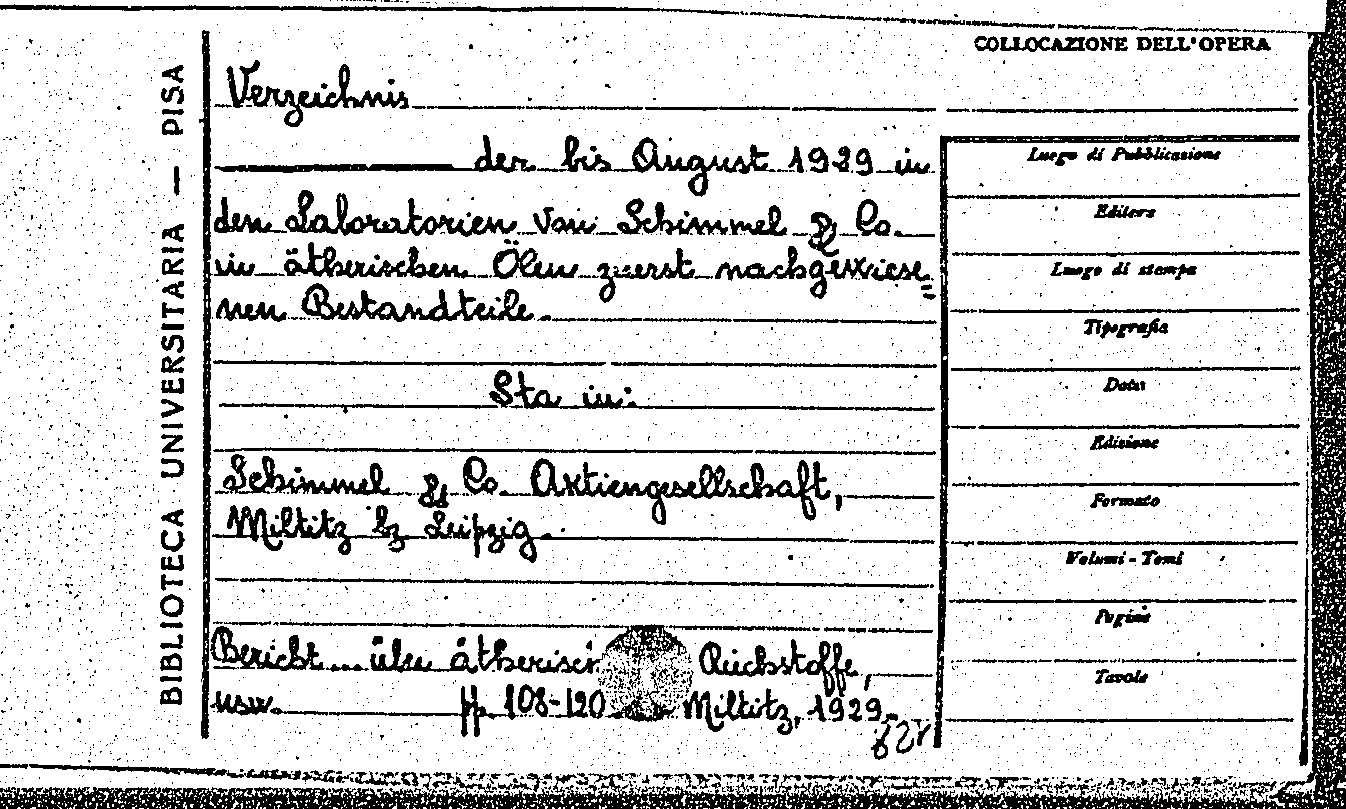 BIBLIOTECA UNIVERSITARIA — PISA
COLLOCAZIONE DELL'OPERA
Verzeichnis
der bis August 1929 in
den Laboratorien von Schimmel & Co.
in ätherischen Ölen zuerst nachgewiese=
nen Bestandteile.
Sta in:
Schimmel & Co. Aktiengesellschaft,
Miltitz bz Leipzig.
Bericht ... über Riechstoffe,
usw. pp. 108-120 Miltitz, 1929.
Luogo di Pubblicazione
Editore
Luogo di stampa
Tipografia
Data
Edizione
Formato
Volumi - Tomi
Pagine
Tavole